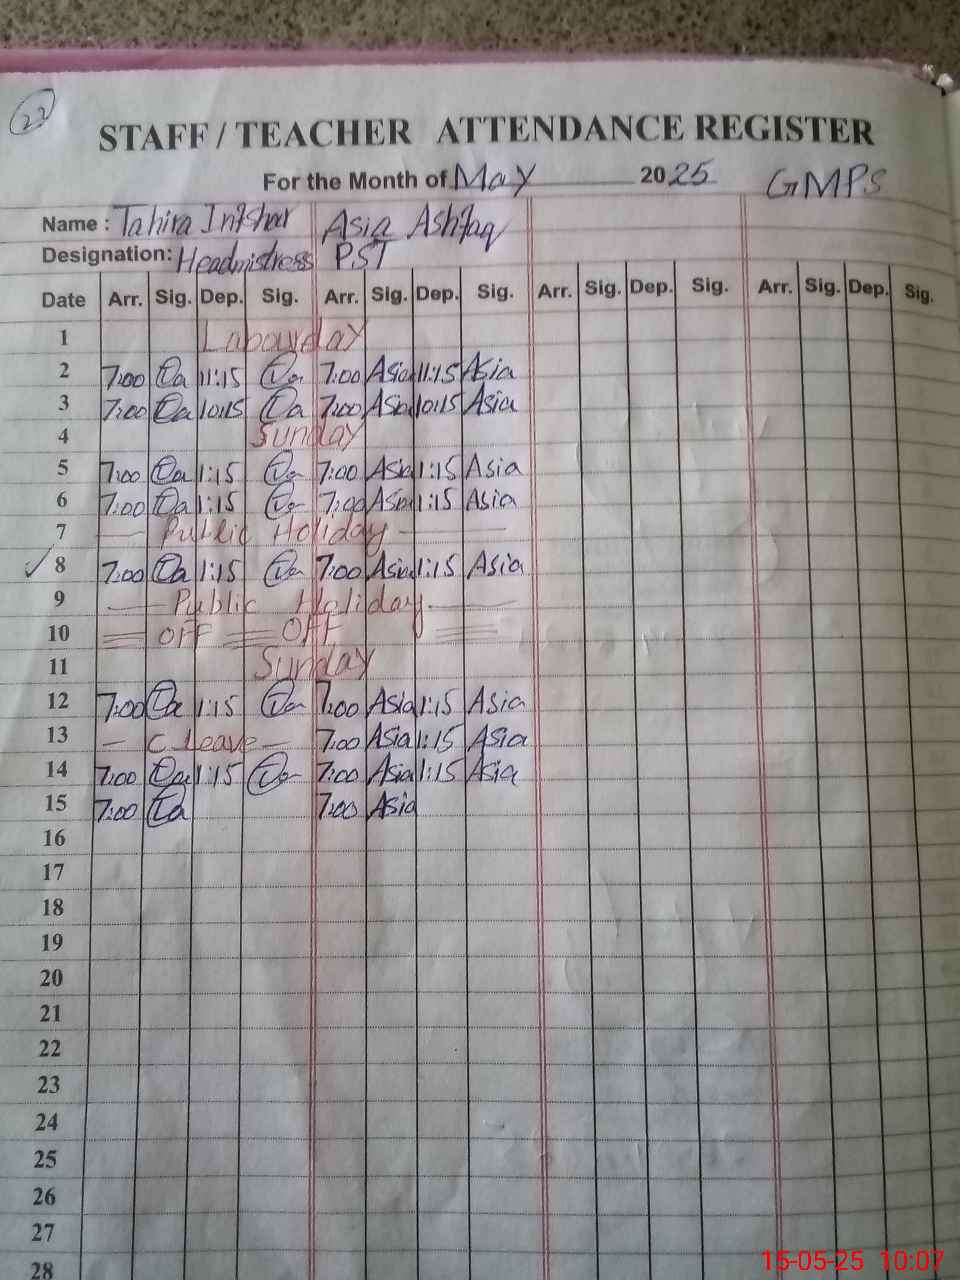 22
STAFF / TEACHER ATTENDANCE REGISTER
For the Month of May 2025 GMPS
Name : Tahira Asia Ashfaq
Designation: Headmistress PST
Date Arr. Sig. Dep. Sig. Arr. Sig. Dep. Sig. Arr. Sig. Dep. Sig. Arr. Sig. Dep. Sig.
1 Labourday
2 7:00 11:15 7:00 Asia 11:15 Asia
3 7:00 10:15 7:00 Asia 10:15 Asia
4 Sunday
5 7:00 1:15 7:00 Asia 1:15 Asia
6 7:00 1:15 7:00 Asia 1:15 Asia
7 Public Holiday
8 7:00 1:15 7:00 Asia 1:15 Asia
9 Public Holiday
10 OFF OFF
11 Sunday
12 7:00 1:15 7:00 Asia 1:15 Asia
13 C Leave 7:00 Asia 1:15 Asia
14 7:00 1:15 7:00 Asia 1:15 Asia
15 7:00 7:00 Asia
16
17
18
19
20
21
22
23
24
25
26
27
28
15-05-25 10:07